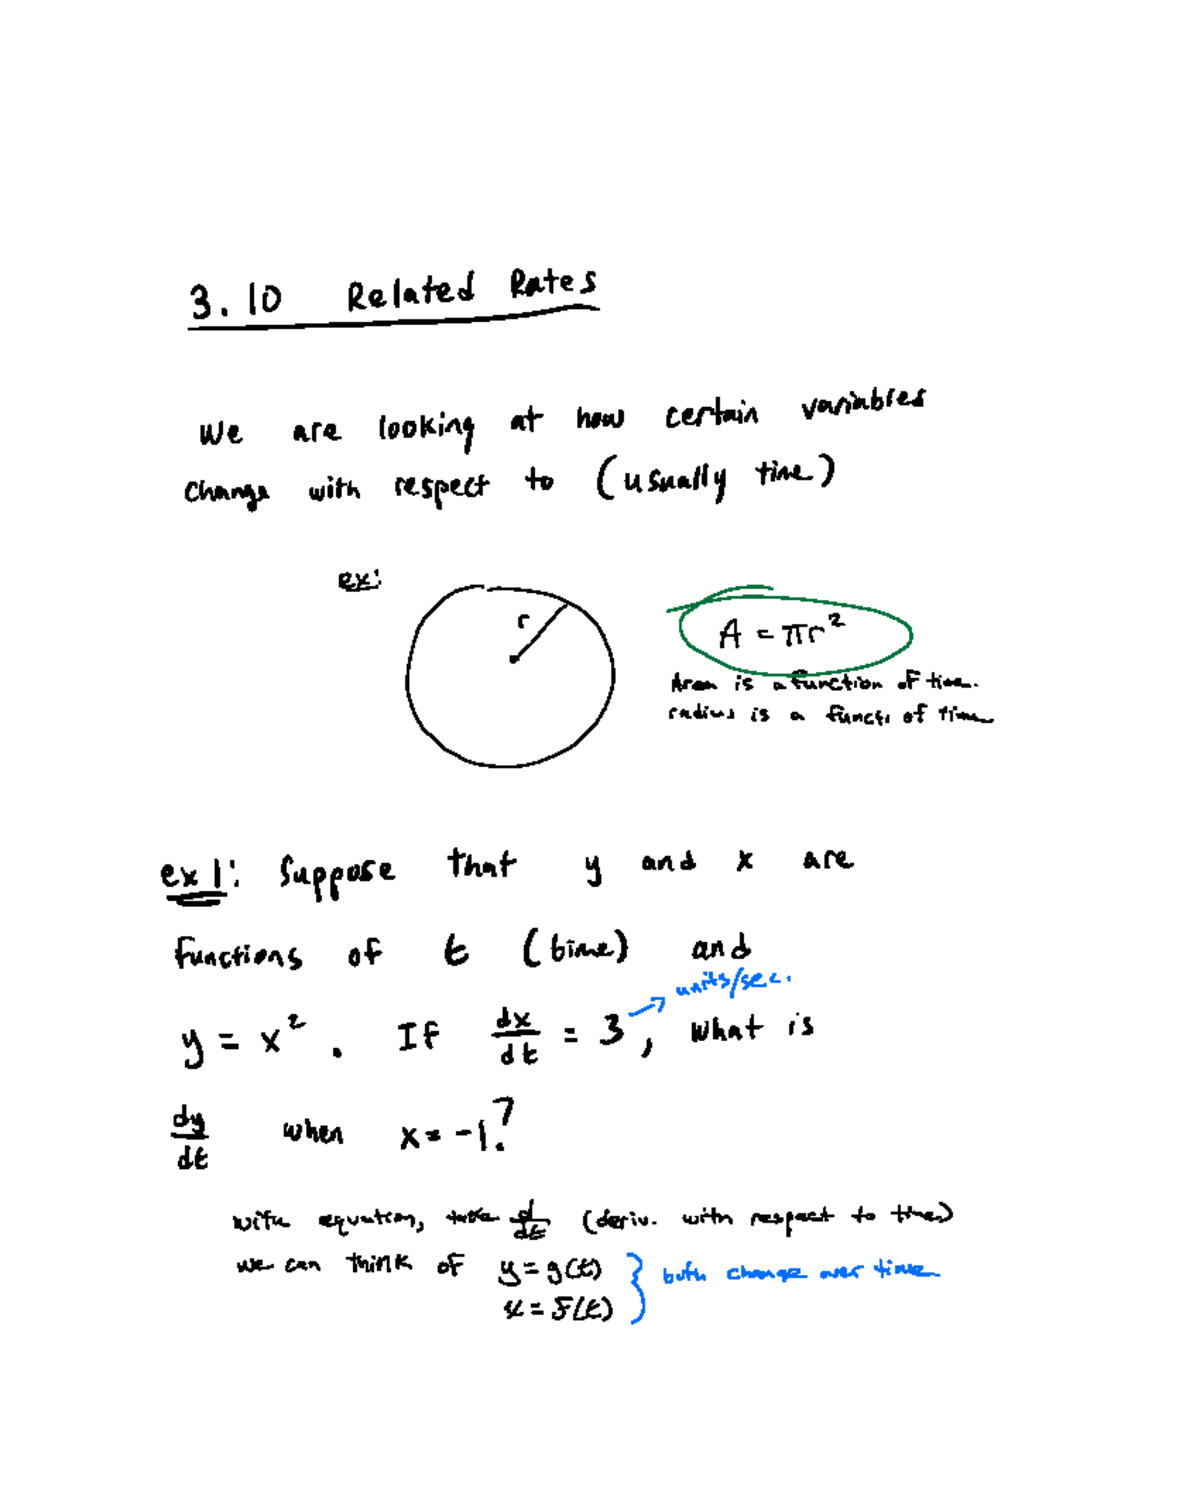 3.10 Related Rates
We are looking at how certain variables
change with respect to (usually time)
ex:
r
A = πr²
Area is a function of time.
radius is a funct. of time
ex 1: Suppose that y and x are
functions of t (time) and
units/sec.
y = x². If dx/dt = 3, what is
dy/dt when x = -1?
with equation, take d/dt (deriv. with respect to time)
we can think of y = g(t) } both change over time
x = f(t)